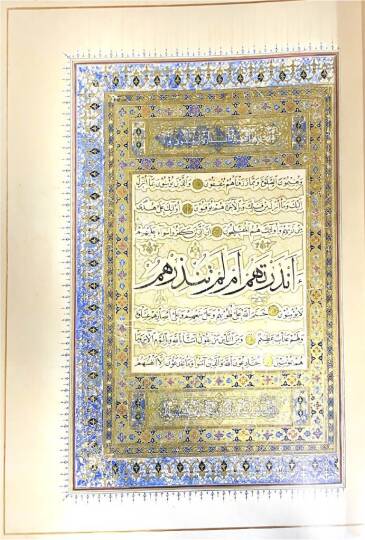 وَيُقِيمُونَ الصَّلٰوةَ وَمِمَّا رَزَقْنَاهُمْ يُنْفِقُونَ وَالَّذِينَ يُؤْمِنُونَ بِمَا أُنْزِلَ
إِلَيْكَ وَمَا أُنْزِلَ مِنْ قَبْلِكَ وَبِالْآخِرَةِ هُمْ يُوقِنُونَ أُولٰئِكَ عَلَىٰ هُدًى
مِنْ رَبِّهِمْ وَأُولٰئِكَ هُمُ الْمُفْلِحُونَ إِنَّ الَّذِينَ كَفَرُوا سَوَاءٌ عَلَيْهِمْ
ءَاَنْذَرْتَهُمْ أَمْ لَمْ تُنْذِرْهُمْ
لَا يُؤْمِنُونَ خَتَمَ اللَّهُ عَلَىٰ قُلُوبِهِمْ وَعَلَىٰ سَمْعِهِمْ وَعَلَىٰ أَبْصَارِهِمْ غِشَاوَةٌ
وَلَهُمْ عَذَابٌ عَظِيمٌ وَمِنَ النَّاسِ مَنْ يَقُولُ آمَنَّا بِاللَّهِ وَبِالْيَوْمِ الْآخِرِ وَمَا
هُمْ بِمُؤْمِنِينَ يُخَادِعُونَ اللَّهَ وَالَّذِينَ آمَنُوا وَمَا يَخْدَعُونَ إِلَّا أَنْفُسَهُمْ